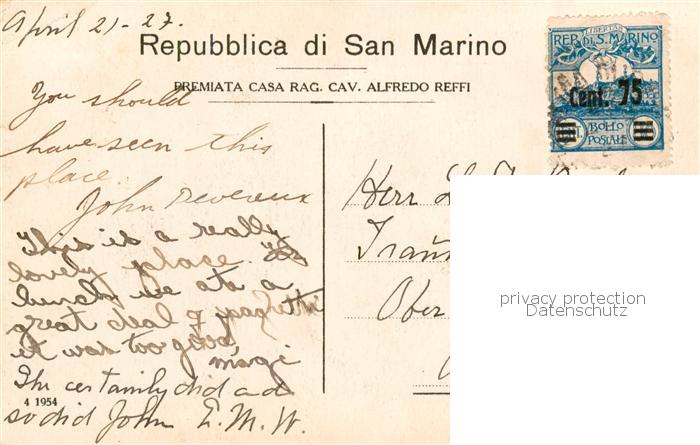 April 21-27.
Repubblica di San Marino
PREMIATA CASA RAG. CAV. ALFREDO REFFI
You should
have seen this
place.
John Devereux
This is a really
lovely place. For
lunch we ate a
great deal of spaghetti
it was too good
Margi
She certainly did and
so did John E.M.W.
4 1954
LIBERTAS
REP. DI S. MARINO
Cent. 75
BOLLO
POSTALE
Herr
Ober
privacy protection
Datenschutz